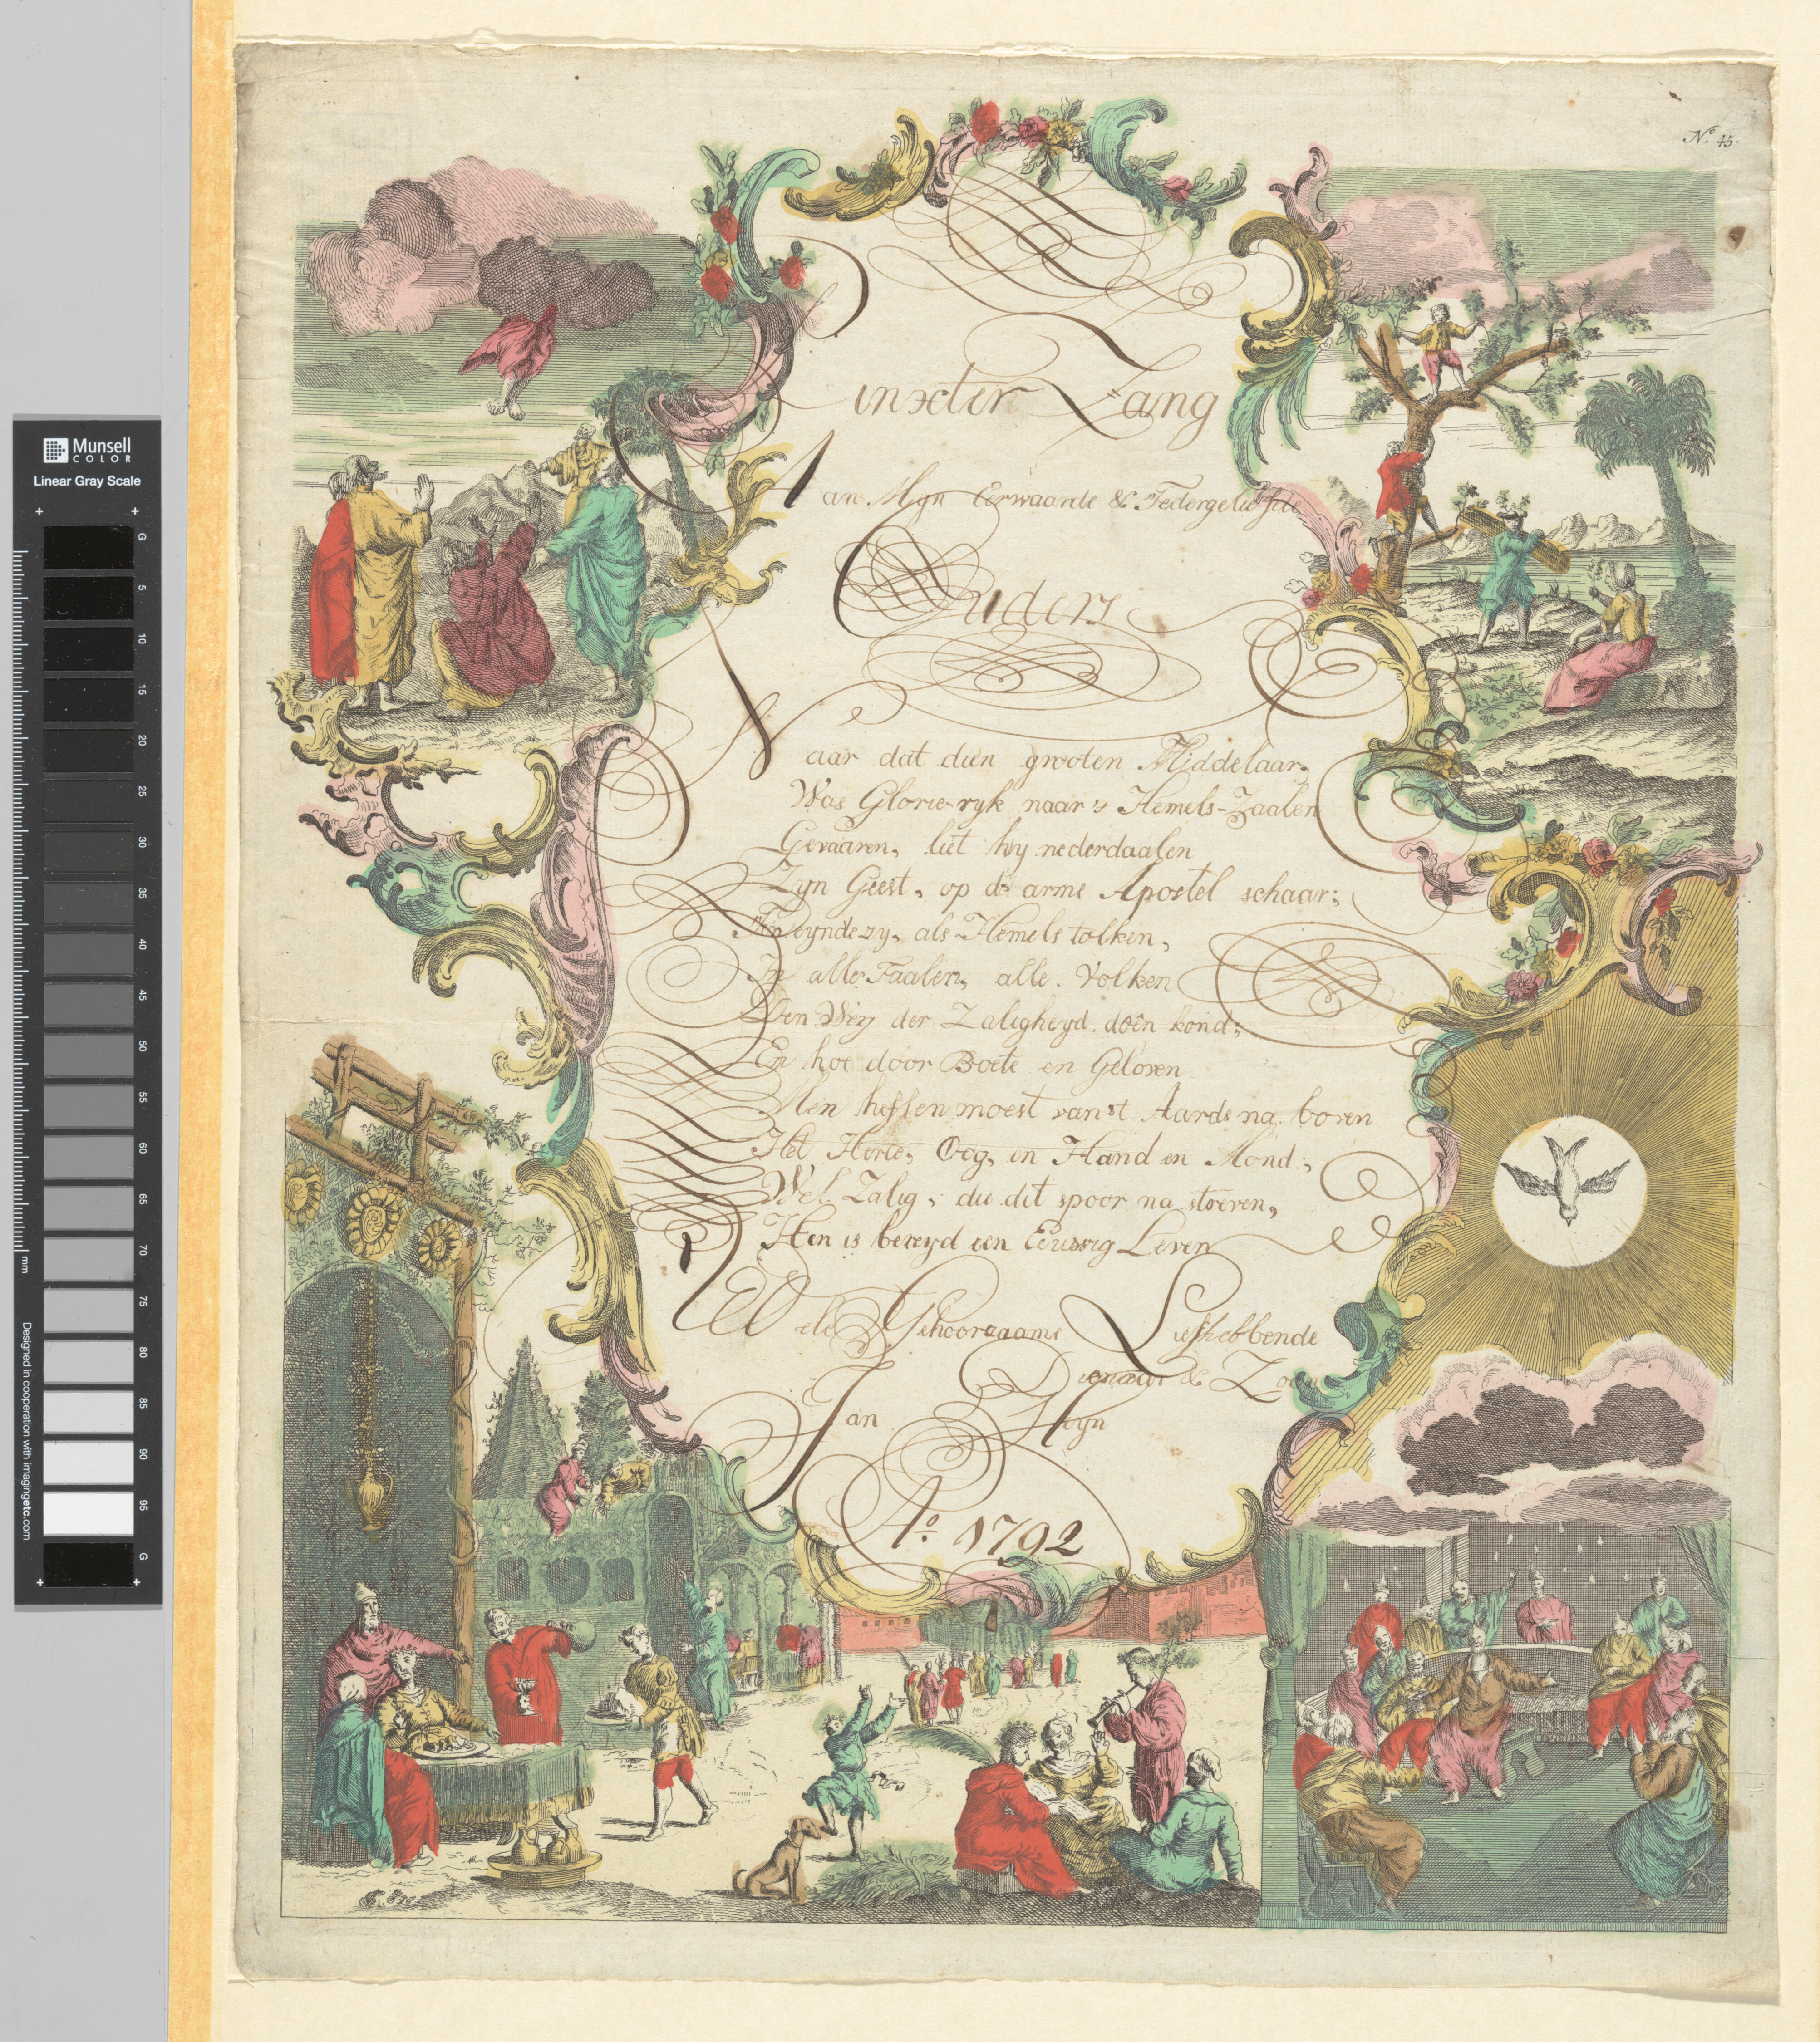 Nº 45.
Pinxter Zang
Aan Mijn Eerwaarde & Tedergeliefde
Ouders
Naar dat dien grooten Middelaar,
Was Glorie-ryk naar 's Hemels-Zaalen
Gevaaren, liet hy nederdaalen
Zyn Geest, op d' arme Apostel schaar;
zy, als Hemels tolken,
In alle Taalen, alle Volken
Den Weg der Zaligheyd doên kond;
En hoe door Boete en Geloven
Men heffen moest van 't Aards na boven
Het Herte, Oog, en Hand en Mond;
Wel Zalig, die dit spoor na streven,
Hen is bereyd een Eeuwig Leven
UEd ele Gehoorzaame Liefhebbende
Dienaar & Zoon
Jan Heyn
Aº. 1792
Munsell
COLOR
Linear Gray Scale
G
5
10
15
20
25
30
35
40
45
50
55
60
65
70
75
80
85
90
95
G
mm
Designed in cooperation with imagingetc.com